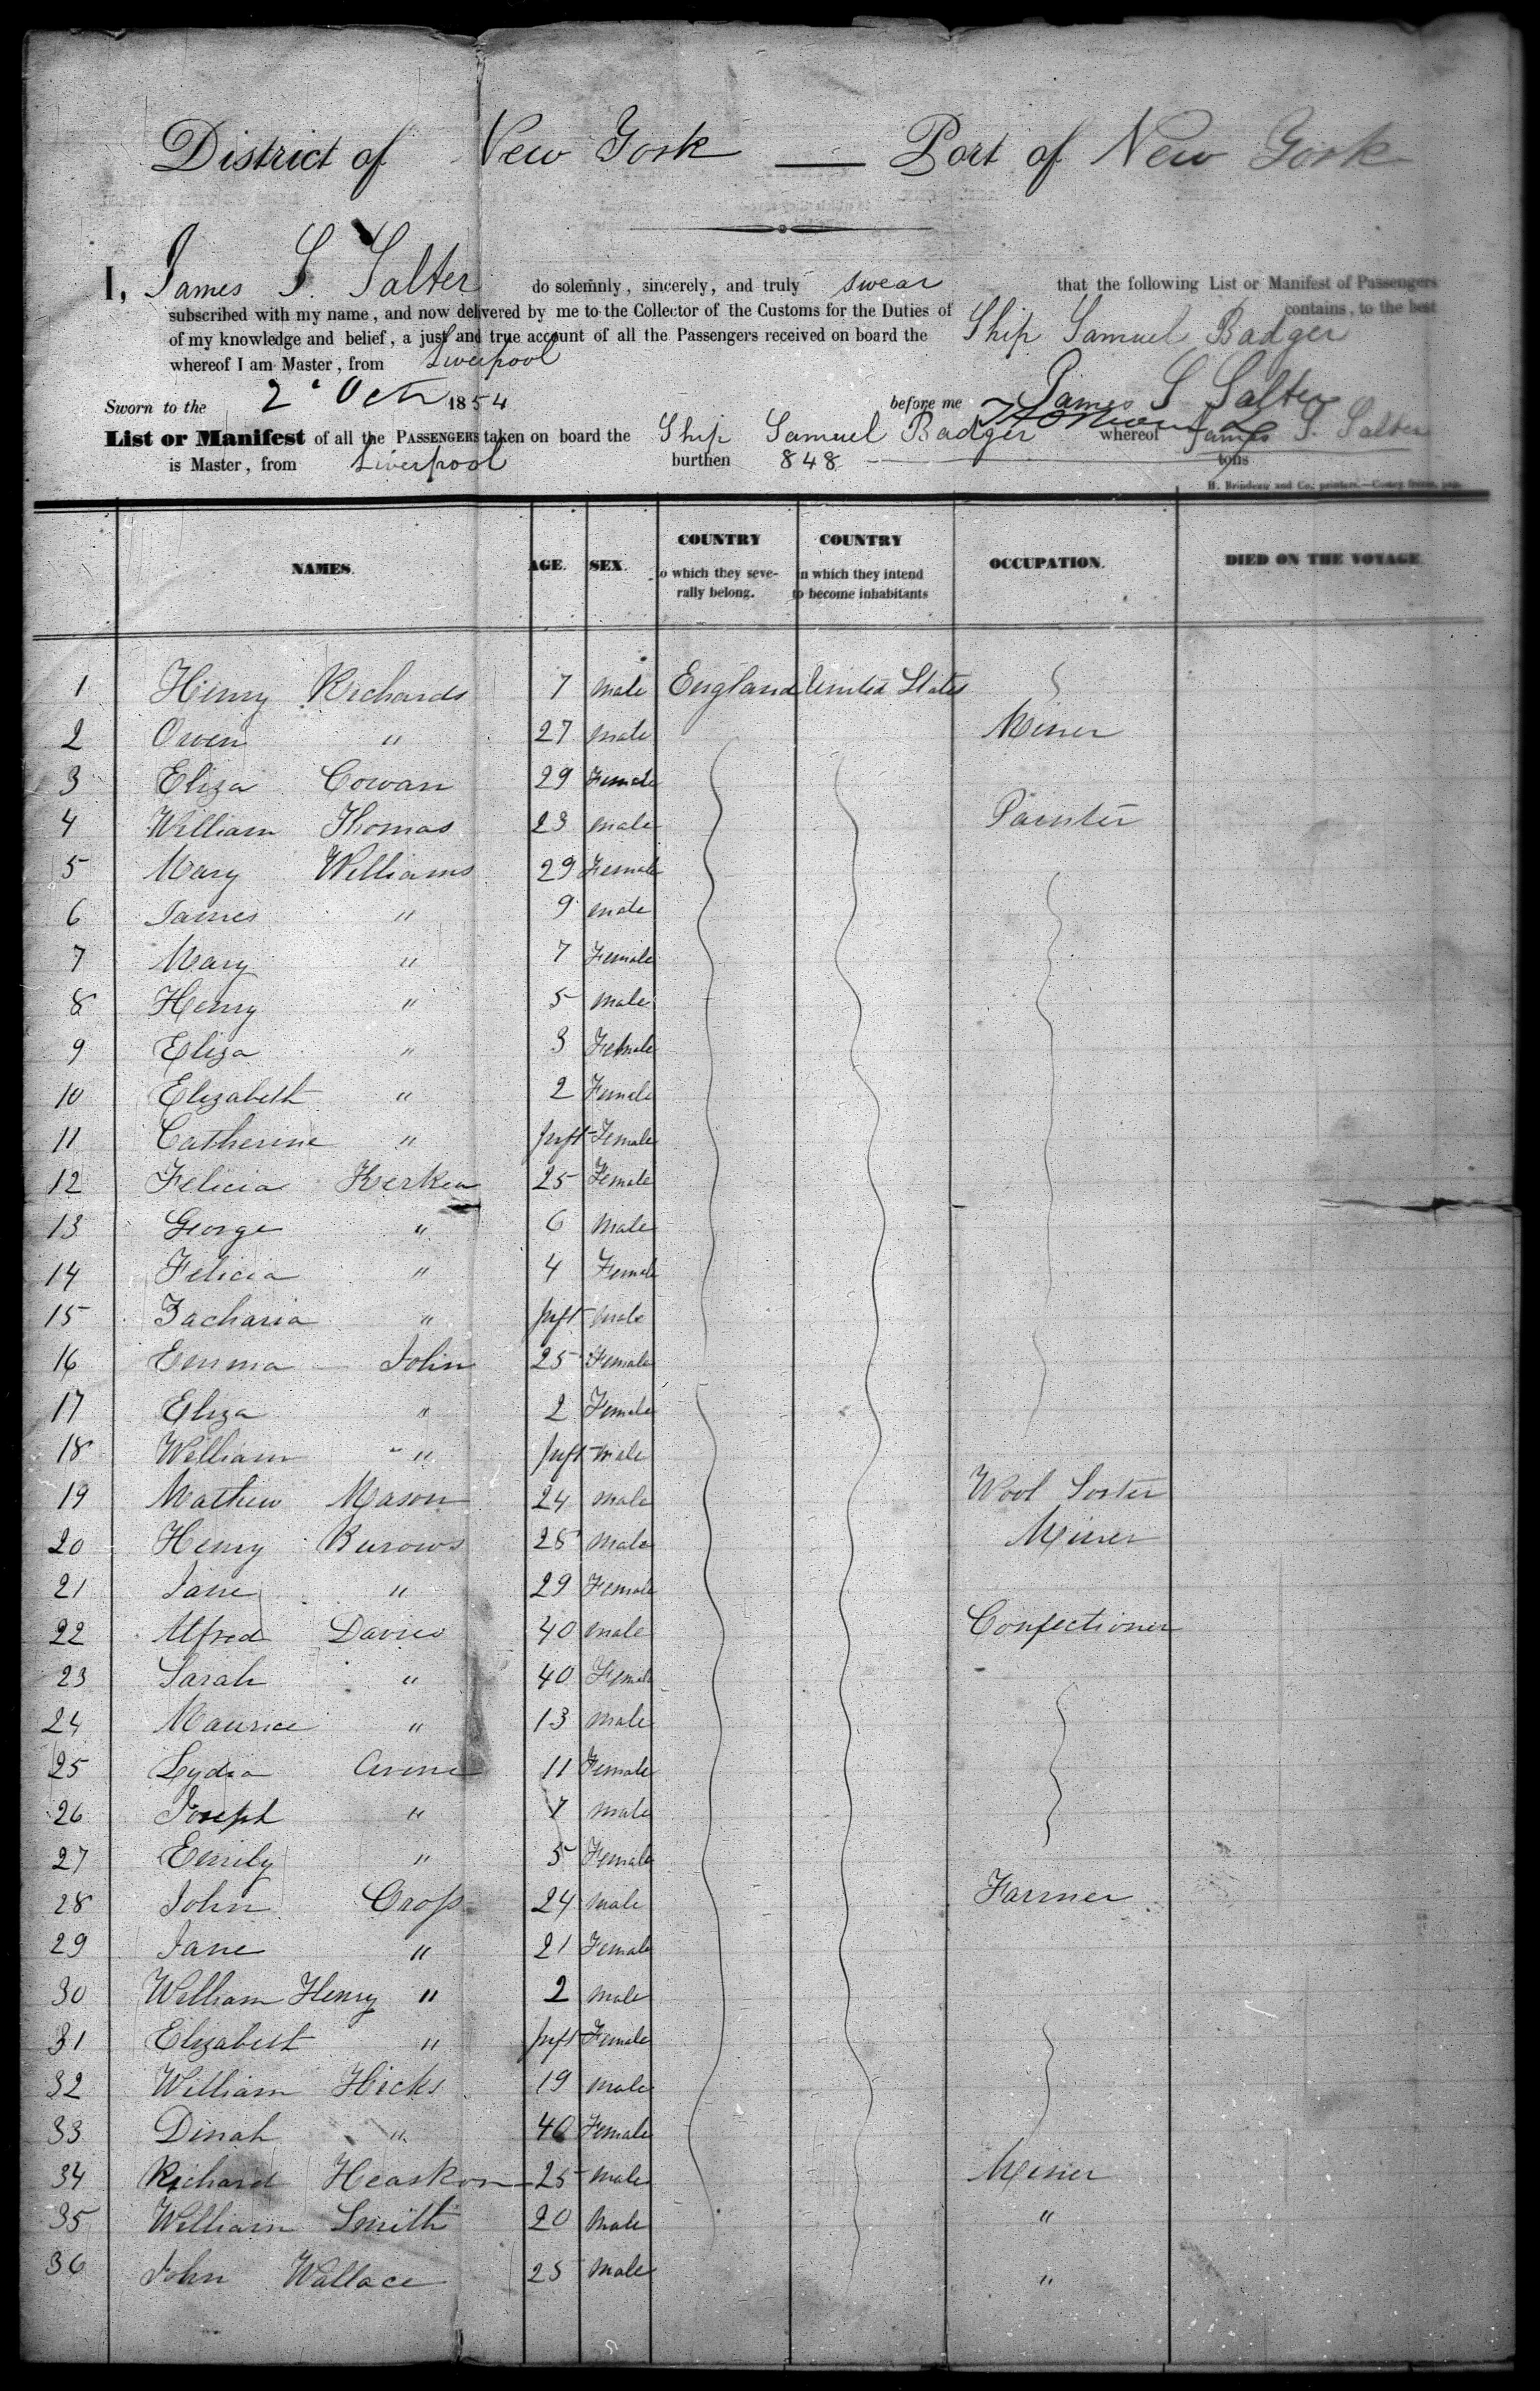 District of New York — Port of New York
I, James S. Salter do solemnly, sincerely, and truly swear that the following List or Manifest of Passengers
subscribed with my name, and now delivered by me to the Collector of the Customs for the Duties of contains, to the best
of my knowledge and belief, a just and true account of all the Passengers received on board the Ship Samuel Badger
whereof I am Master, from Liverpool
James S Salter
Sworn to the 2d Oct 1854 before me
List or Manifest of all the PASSENGERS taken on board the Ship Samuel Badger whereof James S. Salter
is Master, from Liverpool burthen 848 tons
H. Brindeau and Co, printers.
NAMES. AGE. SEX. COUNTRY to which they severally belong. COUNTRY in which they intend to become inhabitants OCCUPATION. DIED ON THE VOYAGE
1 Henry Richards 7 male England United States
2 Owen " 27 male Miner
3 Eliza Cowan 29 Female
4 William Thomas 23 male Painter
5 Mary Williams 29 Female
6 James " 9 male
7 Mary " 7 Female
8 Henry " 5 male
9 Eliza " 3 Female
10 Elizabeth " 2 Female
11 Catherine " Inft Female
12 Felicia 25 Female
13 George " 6 male
14 Felicia " 4 Female
15 Zacharia " Inft male
16 Emma John 25 Female
17 Eliza " 2 Female
18 William " Inft male
19 Mathew Mason 24 male Wool Sorter
20 Henry Burows 28 male Miner
21 Jane " 29 Female
22 Alfred Davies 40 male Confectioner
23 Sarah " 40 Female
24 Maurice " 13 male
25 Lydia Anne 11 Female
26 Joseph " 7 male
27 Emily " 5 Female
28 John Cross 24 male Farmer
29 Jane " 21 Female
30 William Henry " 2 male
31 Elizabeth " Inft Female
32 William Hicks 19 male
33 Dinah " 40 Female
34 Richard Heaskon 25 male Miner
35 William Smith 20 male "
36 John Wallace 25 male "